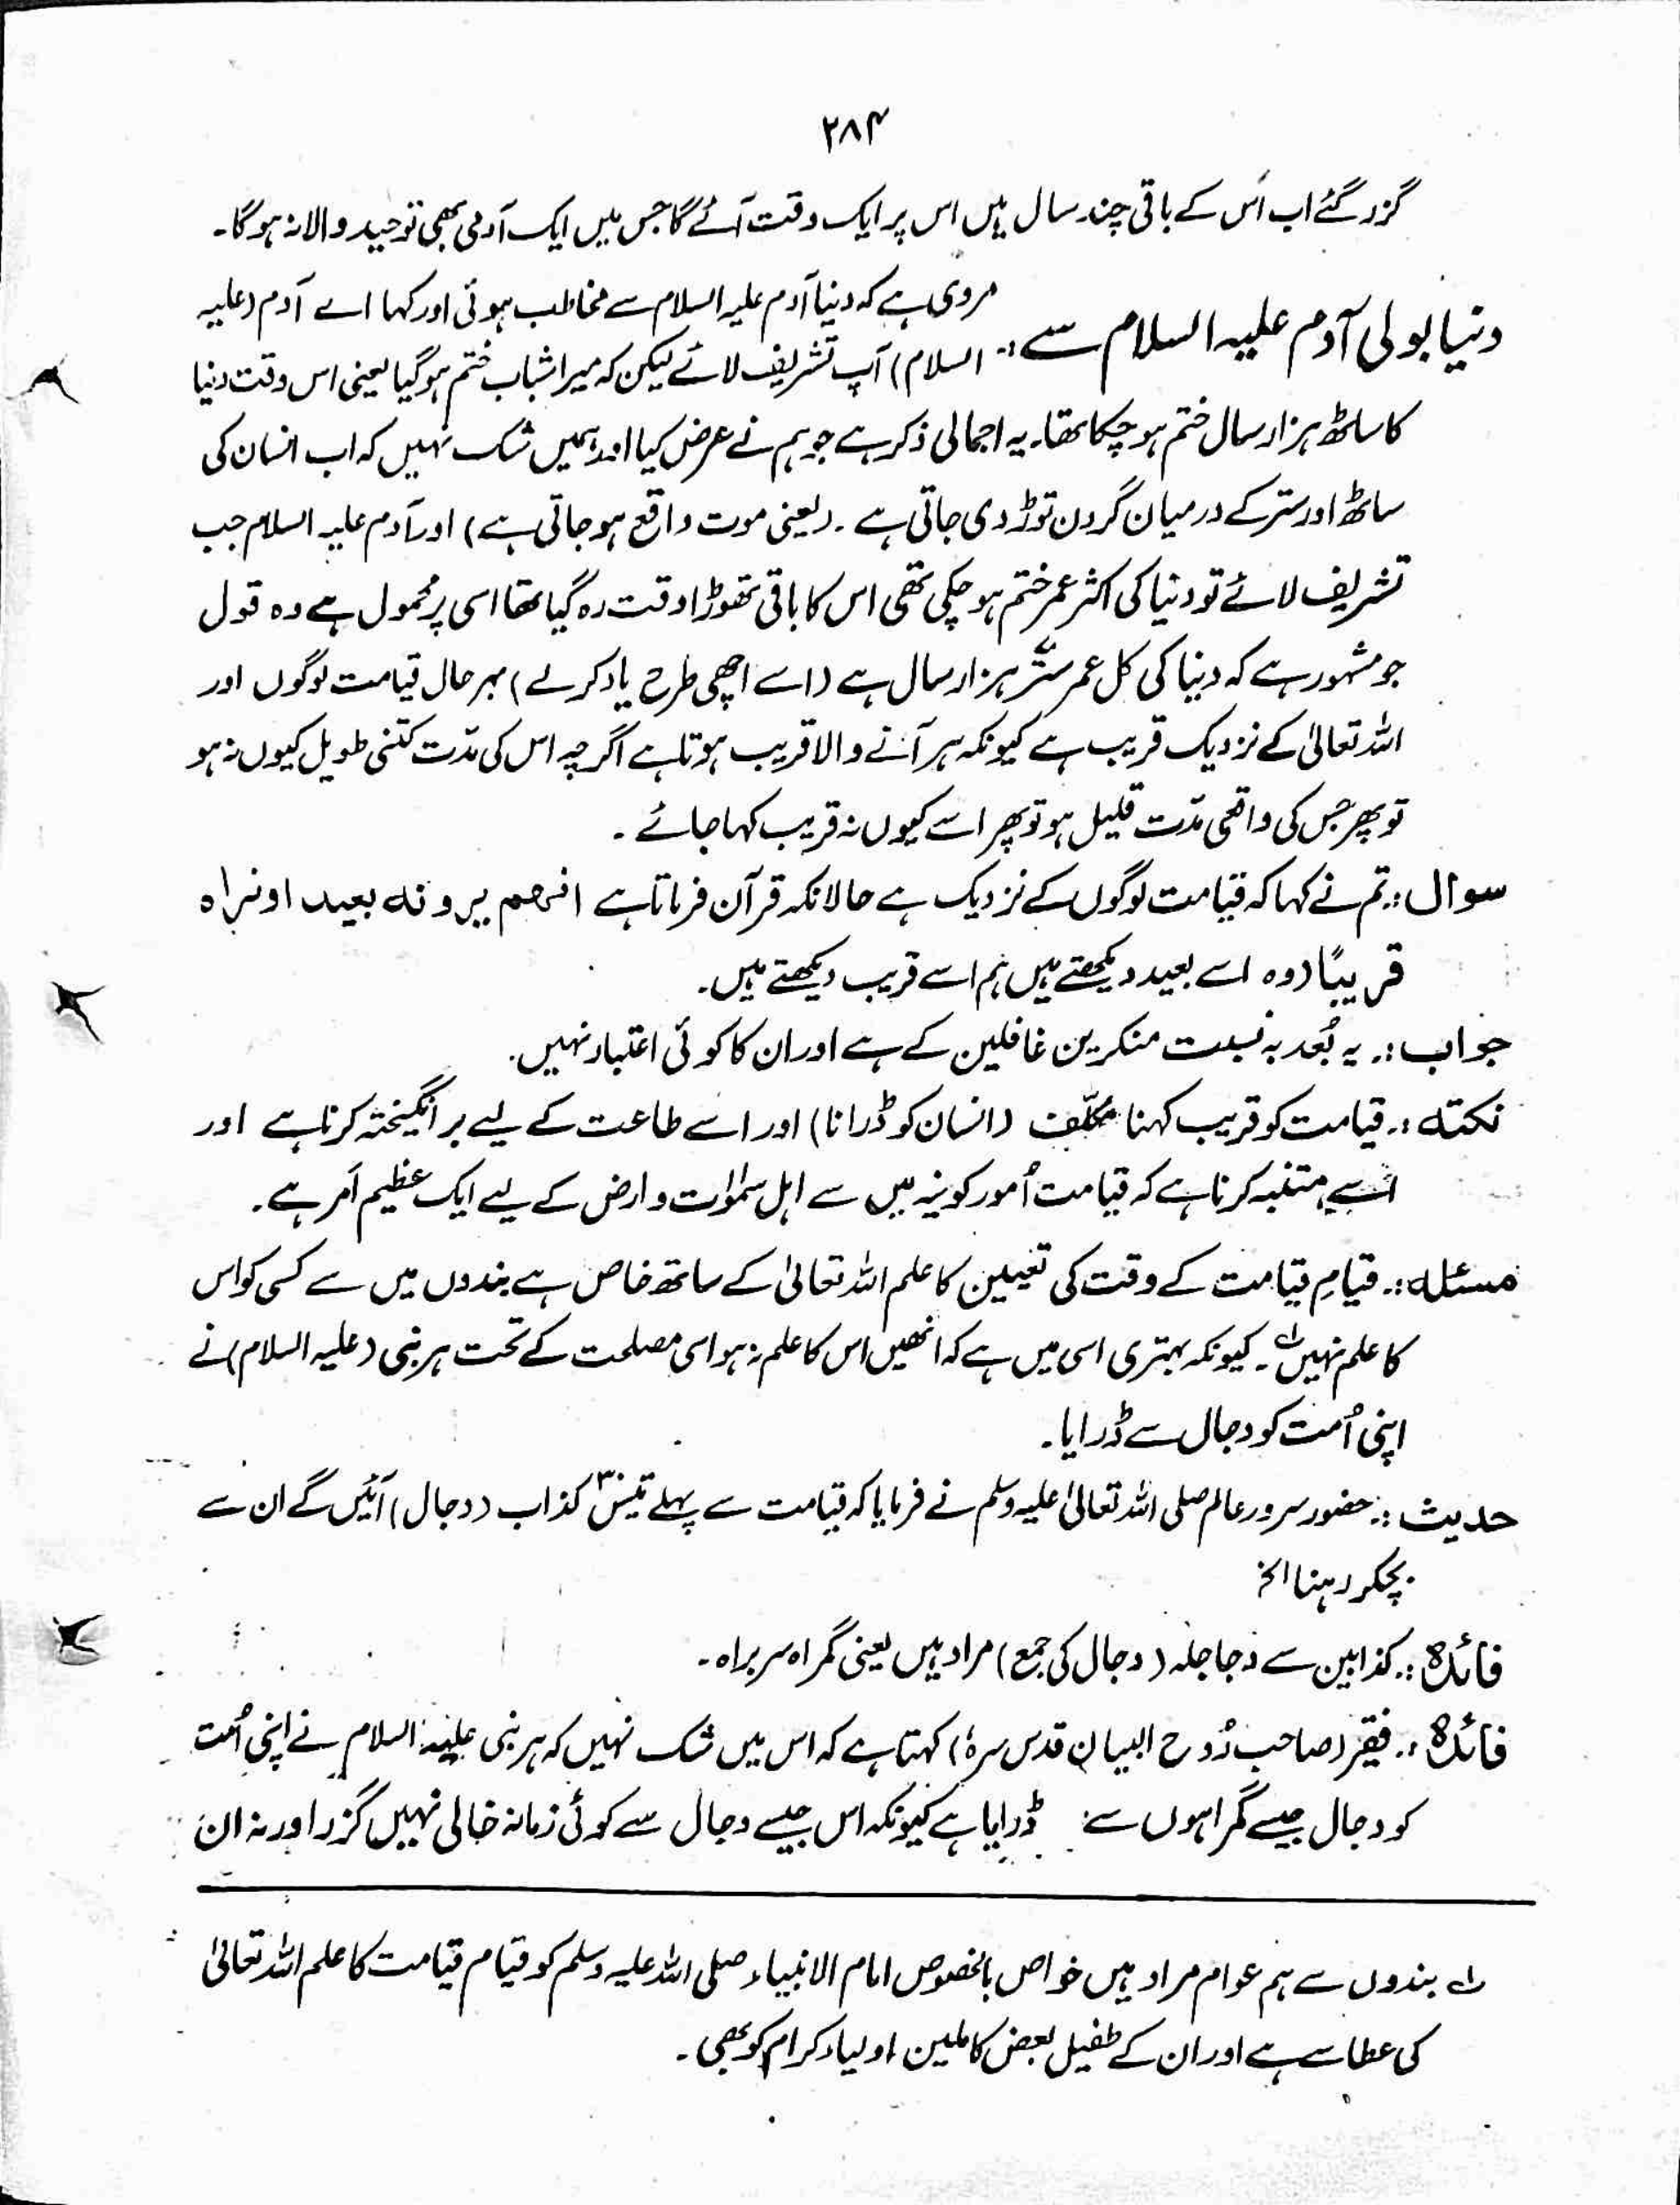 ۲۸۴
گزر گئے اب اُس کے باقی چند سال ہیں اس پر ایک وقت آئے گا جس میں ایک آدمی بھی توحید والا نہ ہوگا۔
دنیا بولی آدم علیہ السلام سے :۔ مروی ہے کہ دنیا آدم علیہ السلام سے مخاطب ہوئی اور کہا اے آدم (علیہ
السلام) آپ تشریف لائے لیکن کہ میرا شباب ختم ہوگیا یعنی اس وقت دنیا
کا ساٹھ ہزار سال ختم ہو چکا تھا۔ یہ اجمالی ذکر ہے جو ہم نے عرض کیا اور ہمیں شک نہیں کہ اب انسان کی
ساٹھ اور ستر کے درمیان گردن توڑ دی جاتی ہے ۔ (یعنی موت واقع ہو جاتی ہے) اور آدم علیہ السلام جب
تشریف لائے تو دنیا کی اکثر عمر ختم ہو چکی تھی اس کا باقی تھوڑا وقت رہ گیا تھا اسی پر محمول ہے وہ قول
جو مشہور ہے کہ دنیا کی کل عمر ستّر ہزار سال ہے (اسے اچھی طرح یاد کرلے) بہر حال قیامت لوگوں اور
اللہ تعالیٰ کے نزدیک قریب ہے کیونکہ ہر آنے والا قریب ہوتا ہے اگرچہ اس کی مدّت کتنی طویل کیوں نہ ہو
تو پھر جس کی واقعی مدّت قلیل ہو تو پھر اسے کیوں نہ قریب کہا جائے ۔
سوال :۔ تم نے کہا کہ قیامت لوگوں کے نزدیک ہے حالانکہ قرآن فرماتا ہے انھم یرونه بعید اونراہ
قریبًا (وہ اسے بعید دیکھتے ہیں ہم اسے قریب دیکھتے ہیں۔
جواب :۔ یہ بُعد بہ نسبت منکرین غافلین کے ہے اور ان کا کوئی اعتبار نہیں۔
نکتہ :۔ قیامت کو قریب کہنا مکلّف (انسان کو ڈرانا) اور اسے طاعت کے لیے برانگیختہ کرنا ہے اور
اسے متنبہ کرنا ہے کہ قیامت اُمور کونیہ میں سے اہل سمٰوات و ارض کے لیے ایک عظیم اَمر ہے۔
مسئلہ :۔ قیامِ قیامت کے وقت کی تعیین کا علم اللہ تعالیٰ کے ساتھ خاص ہے بندوں میں سے کسی کو اس
کا علم نہیں ؎۱۔ کیونکہ بہتری اسی میں ہے کہ انھیں اس کا علم نہ ہو اسی مصلحت کے تحت ہر نبی (علیہ السلام) نے
اپنی اُمت کو دجال سے ڈرایا۔
حدیث :۔ حضور سرور عالم صلی اللہ تعالیٰ علیہ وسلم نے فرمایا کہ قیامت سے پہلے تیس۳۰ کذاب (دجال) آئیں گے ان سے
بچکر رہنا الخ
فائدہ :۔ کذابین سے دجاجلہ (دجال کی جمع) مراد ہیں یعنی گمراہ سربراہ۔
فائدہ :۔ فقیر (صاحب رُوح البیان قدس سرہٗ) کہتا ہے کہ اس میں شک نہیں کہ ہر نبی علیہ السلام نے اپنی اُمت
کو دجال جیسے گمراہوں سے ڈرایا ہے کیونکہ اس جیسے دجال سے کوئی زمانہ خالی نہیں گزرا اور نہ ان
؎۱ بندوں سے ہم عوام مراد ہیں خواص بالخصوص امام الانبیاء صلی اللہ علیہ وسلم کو قیام قیامت کا علم اللہ تعالیٰ
کی عطا سے ہے اور ان کے طفیل بعض کاملین اولیاء کرام کو بھی ۔